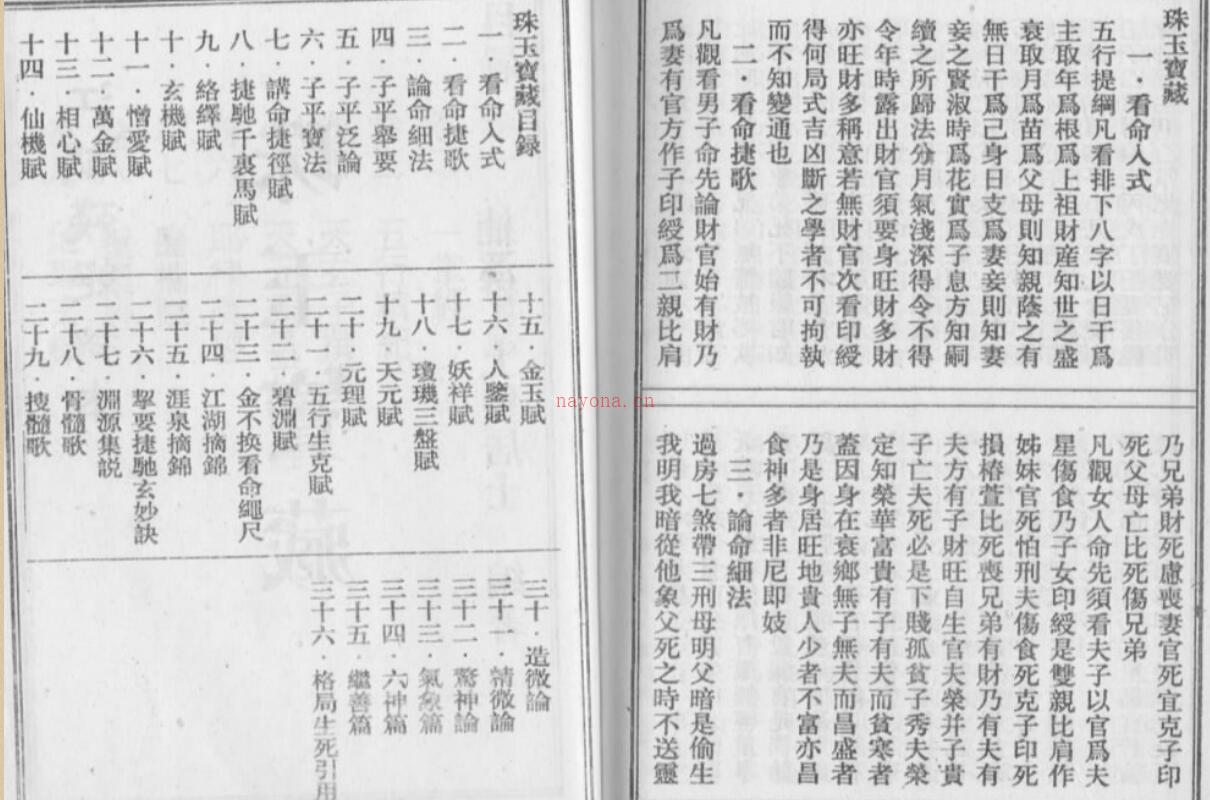 珠玉寶藏
一．看命入式
五行提綱凡看排下八字以日干爲
主取年爲根爲上祖財産知世之盛
衰取月爲苗爲父母則知親蔭之有
無日干爲己身日支爲妻妾則知妻
妾之賢淑時爲花實爲子息方知嗣
續之所歸法分月氣淺深得令不得
令年時露出財官須要身旺財多財
亦旺財多稱意若無財官次看印綬
得何局式吉凶斷之學者不可拘執
而不知變通也
二．看命捷歌
凡觀看男子命先論財官始有財乃
爲妻有官方作子印綬爲二親比肩
乃兄弟財死慮喪妻官死宜克子印
死父母亡比死傷兄弟
凡觀女人命先須看夫子以官爲夫
星傷食乃子女印綬是雙親比肩作
姊妹官死怕刑夫傷食死克子印死
損椿萱比死喪兄弟有財乃有夫有
夫方有子財旺自生官夫榮并子貴
子亡夫死必是下賤孤貧子秀夫榮
定知榮華富貴有子有夫而貧寒者
蓋因身在衰鄉無子無夫而昌盛者
乃是身居旺地貴人少者不富亦昌
食神多者非尼即妓
三．論命細法
過房七煞帶三刑母明父暗是偷生
我明我暗從他象父死之時不送靈
珠玉寶藏目録
一．看命入式
二．看命捷歌
三．論命細法
四．子平舉要
五．子平泛論
六．子平寶法
七．講命捷徑賦
八．捷馳千裏馬賦
九．絡繹賦
十．玄機賦
十一．憎愛賦
十二．萬金賦
十三．相心賦
十四．仙機賦
十五．金玉賦
十六．人鑒賦
十七．妖祥賦
十八．瓊璣三盤賦
十九．天元賦
二十．元理賦
二十一．五行生克賦
二十二．碧淵賦
二十三．金不换看命繩尺
二十四．江湖摘錦
二十五．涯泉摘錦
二十六．挈要捷馳玄妙訣
二十七．淵源集説
二十八．骨髓歌
二十九．搜髓歌
三十．造微論
三十一．精微論
三十二．驚神論
三十三．氣象篇
三十四．六神篇
三十五．繼善篇
三十六．格局生死引用
nayona.cn